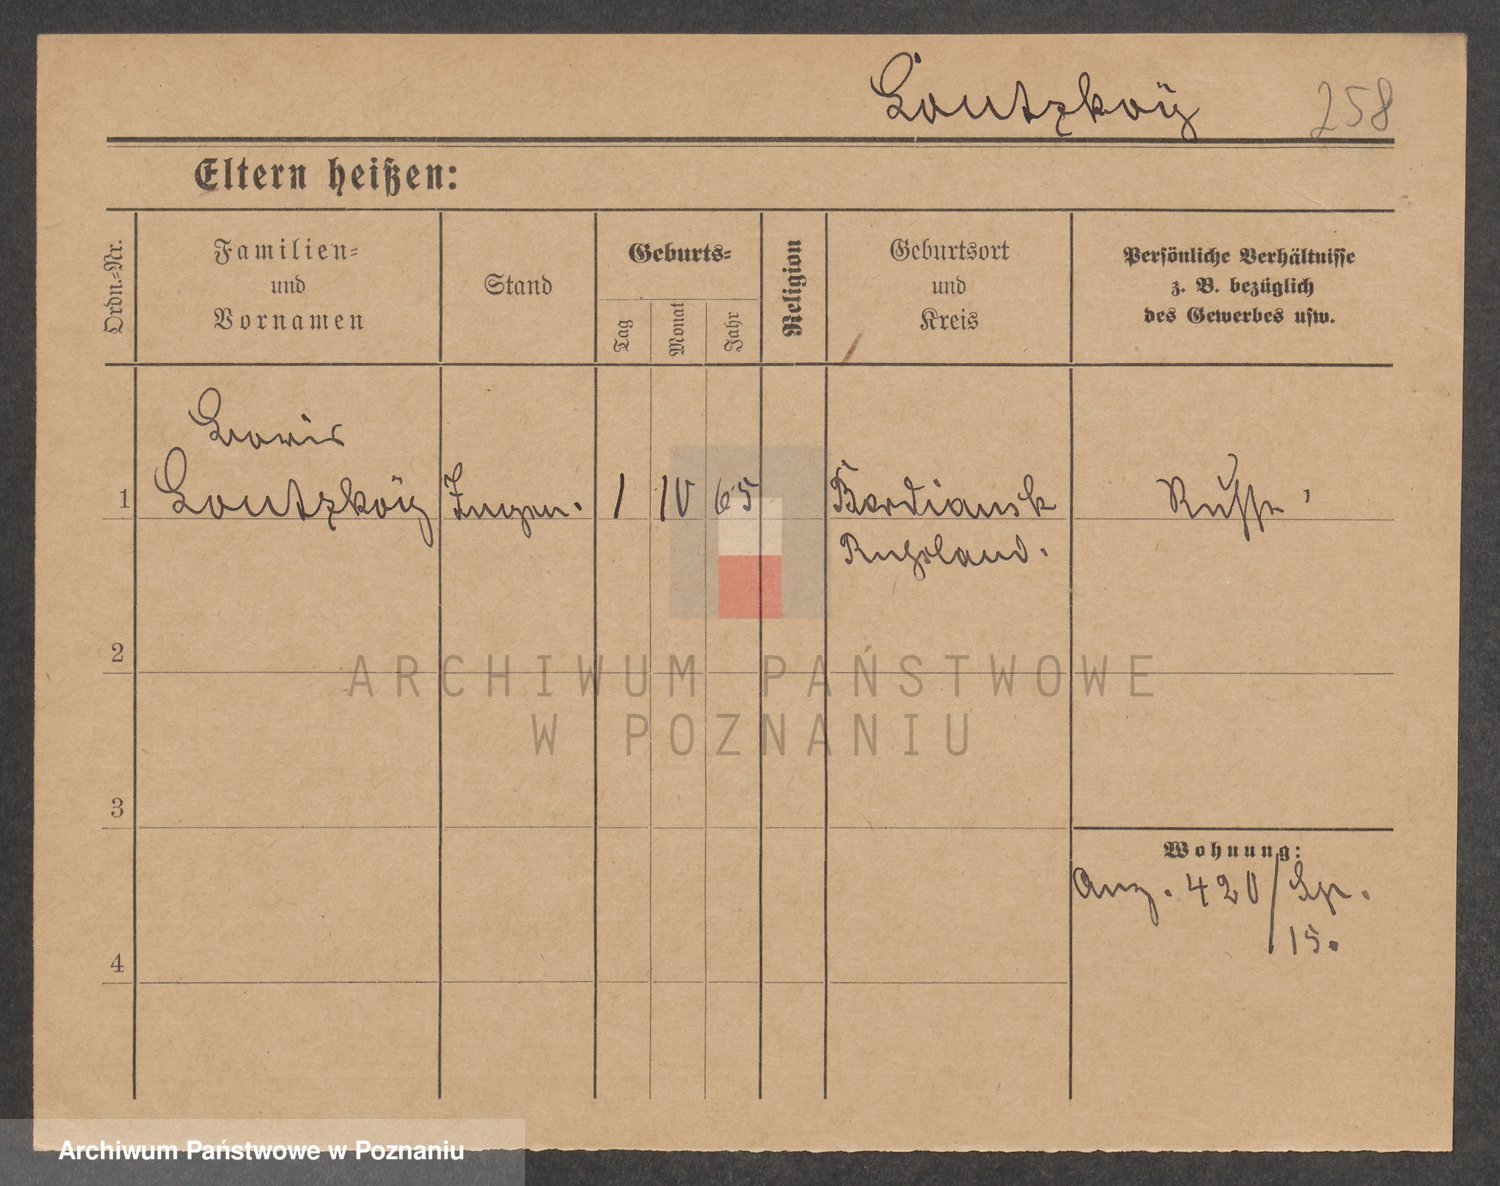 Loutzkoÿ 258
Eltern heißen:
Ordn.-Nr.
Familien-
und
Vornamen
Stand
Geburts-
Tag
Monat
Jahr
Religion
Geburtsort
und
Kreis
Persönliche Verhältnisse
z. B. bezüglich
des Gewerbes usw.
1
Loutzkoÿ
1 IV 65
Berdiansk
Russland.
Russe
2
3
4
Wohnung:
Anz. 420/
15.
ARCHIWUM PAŃSTWOWE
W POZNANIU
Archiwum Państwowe w Poznaniu